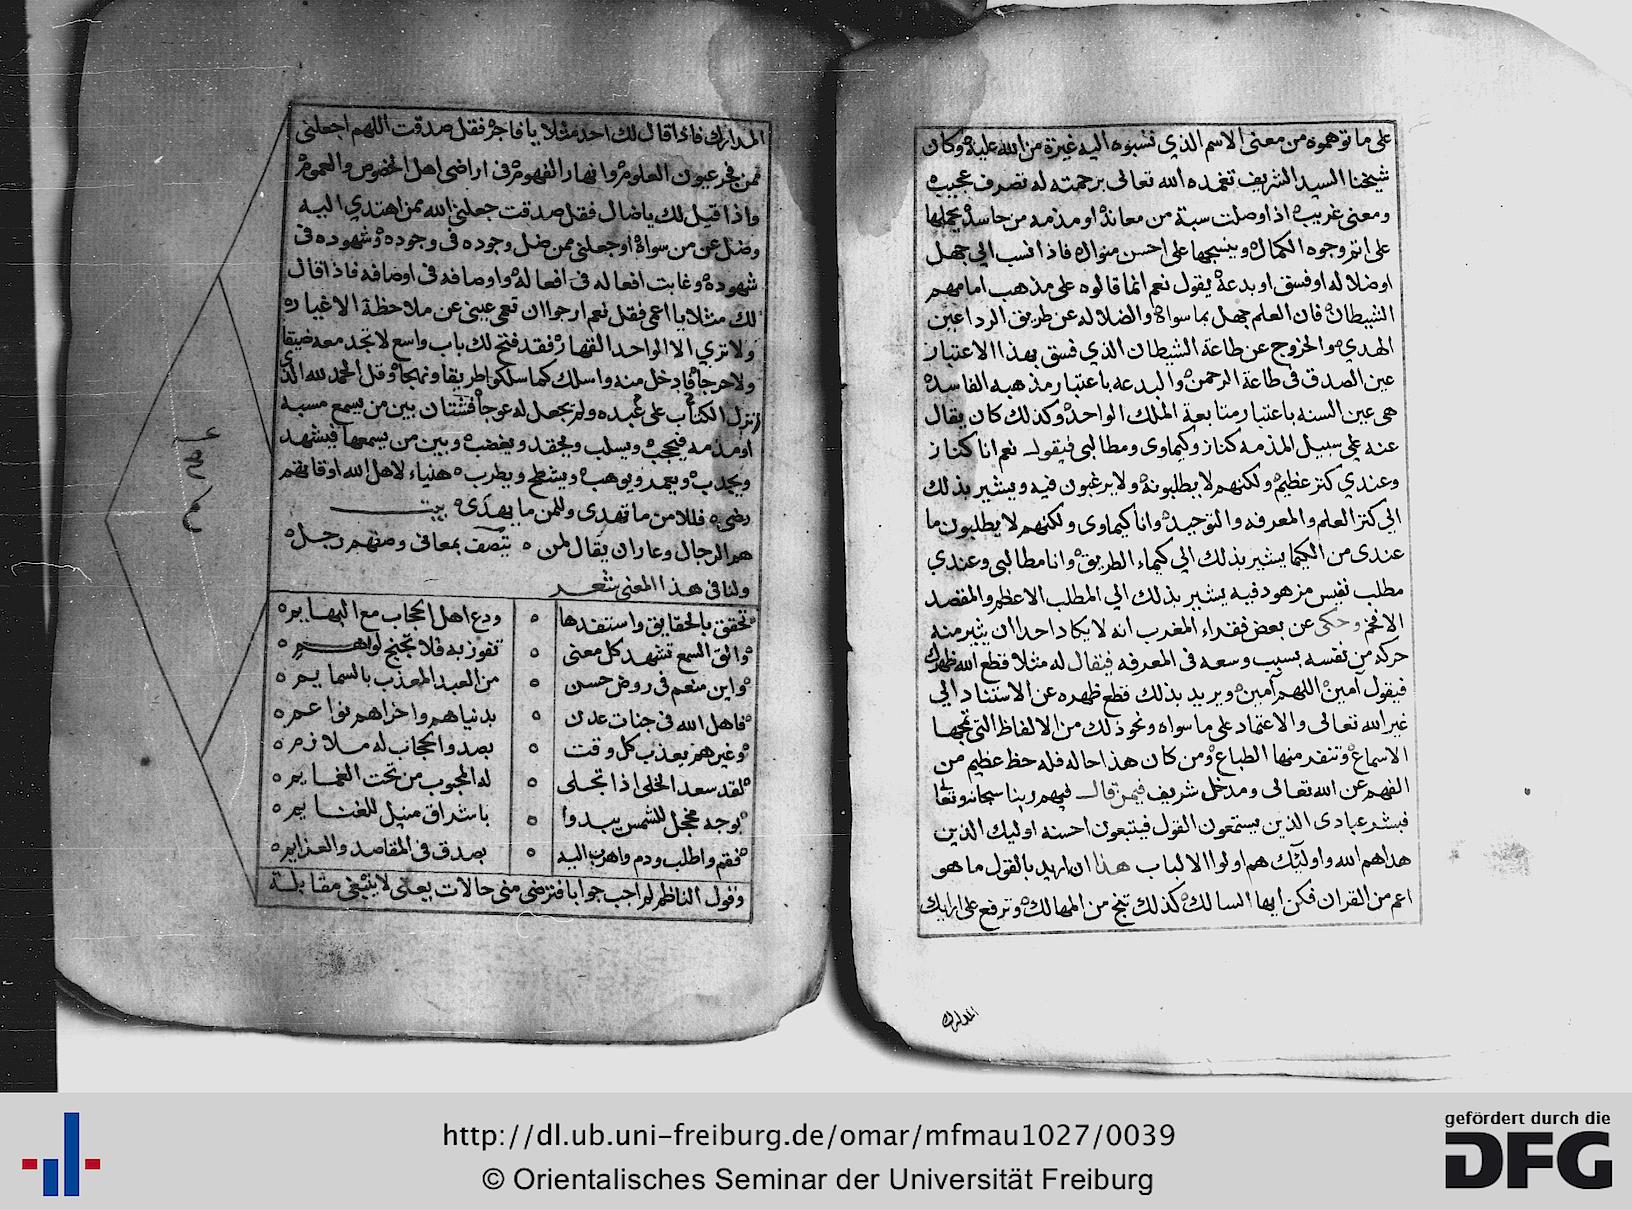 على ما توهموه من معنى الاسم الذي نسبوه اليه غيرة من الله عليه وكان
شيخنا السيد الشريف تغمده الله تعالى برحمته له تصرف عجيب
ومعنى غريب اذا وصلت سبة من معاند او مذمه من حاسد يحملها
على اتم وجوه الكمال وينسجها على احسن منوال فاذا نسب الي جهل
او ضلاله او فسق او بدعة يقول نعم انما قالوه على مذهب امامهم
الشيطان فان العلم جهل بما سواه والضلاله عن طريق الردا عين
الهدي والخروج عن طاعة الشيطان الذي فسق بهذا الاعتبار
عين الصدق في طاعة الرحمن والبدعه باعتبار مذهبه الفاسد
هي عين السنه باعتبار متابعة الملك الواحد وكذلك كان يقال
عنه علي سبيل المذمه كناز وكيماوى ومطالبى فيقول نعم انا كناز
وعندي كنز عظيم ولكنهم لا يطلبونه ولا يرغبون فيه ويشير بذلك
الي كنز العلم والمعرفه والتوحيد وانا كيماوى ولكنهم لا يطلبون ما
عندى من الكيميا يشير بذلك الي كيمياء الطريق وانا مطالبى وعندي
مطلب نفيس مزهود فيه يشير بذلك الي المطلب الاعظم والمقصد
الافخم وحكى عن بعض فقراء المغرب انه لا يكاد احدا ان يثير منه
حركه من نفسه بسبب وسعه فى المعرفه فيقال له مثلا قطع الله ظهرك
فيقول آمين اللهم آمين ويريد بذلك قطع ظهره عن الاستناد الي
غير الله تعالى والاعتماد على ما سواه ونحو ذلك من الالفاظ التى تمجها
الاسماع وتنفر منها الطباع ومن كان هذا حاله فله حظ عظيم من
الفهم عن الله تعالى ومدخل شريف فيمن قال فيهم ربنا سبحانه وتعا
فبشر عبادى الذين يستمعون القول فيتبعون احسنه اوليك الذين
هداهم الله واولئك هم اولوا الالباب هذا ان اريد بالقول ما هو
اعم من القران فكن ايها السالك كذلك تنج من المهالك وترفع على ارايك
المدارك
المدارك فاذا قال لك احد مثلا يا فاجر فقل صدقت اللهم اجعلنى
ممن فجر عيون العلوم وانهار الفهوم في اراضى اهل الخصوص والعموم
واذا قيل لك يا ضال فقل صدقت جعلنى الله ممن اهتدي اليه
وضل عن من سواه او جعلنى ممن ضل وجوده فى وجوده وشهوده فى
شهوده وغابت افعاله فى افعاله واوصافه فى اوصافه فاذا قال
لك مثلا يا اعمى فقل نعم ارجوا ان تعمى عينى عن ملاحظة الاغيار
ولا تري الا الواحد القهار فقد فتح لك باب واسع لا تجد معه ضيقا
ولا حرجا فادخل منه واسلك كما سلكوا طريقا ونهجا وقل الحمد لله الذي
انزل الكتاب على عبده ولم يجعل له عوجا فشتان بين من يسمع مسبه
او مذمه فيحجب ويسلب ويحقد ويغضب وبين من يسمعها فيشهد
ويجذب ويحمد ويوهب ويشطح ويطرب هنياء لاهل الله اوقاتهم
رضي فللامن ما تهدى وللمن ما يهدى بيت
هم الرجال وعار ان يقال لمن ٥ يتصف بمعانى وصفهم رجل
ولنا فى هذا المعنى شعر
تحقق بالحقايق واستفدها ٥ ودع اهل الحجاب مع البهايم
والق السمع تشهد كل معنى ٥ تفوز به فلا تجنح
واين منعم فى روض حسن ٥ من العبد المعذب بالسمايم
فاهل الله فى جنات عدن ٥ بدنياهم واخراهم نواعم
وغيرهم يعذب كل وقت ٥ بصد والحجاب له ملازم
لقد سعد الخلى اذا تجلى ٥ له المحبوب من تحت الغمايم
بوجه مخجل للشمس يبدوا ٥ باشراق للغنايم
فقم واطلب ودم واهرب اليه ٥ بصدق فى المقاصد والعزايم
وقول الناظم لم اجب جوابا فترضى منى حالات يعنى لا ينبغى مقابلة
http://dl.ub.uni-freiburg.de/omar/mfmau1027/0039
© Orientalisches Seminar der Universität Freiburg
gefördert durch die
DFG